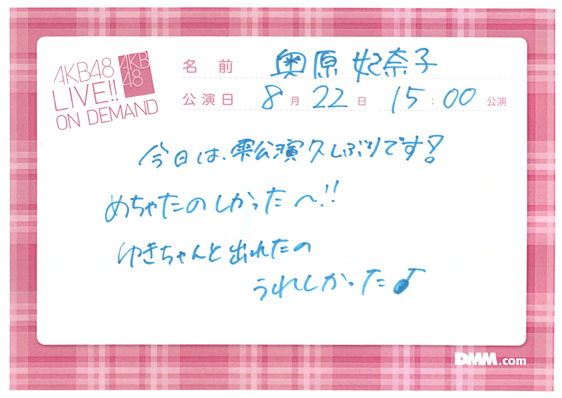 AKB48
LIVE!!
ON DEMAND
AKB
48
名前 奥原 妃奈子
公演日 8月22日 15:00公演
今日は、雫公演久しぶりです!
めちゃたのしかった〜!!
ゆきちゃんと出れたの
うれしかった♪
DMM.com